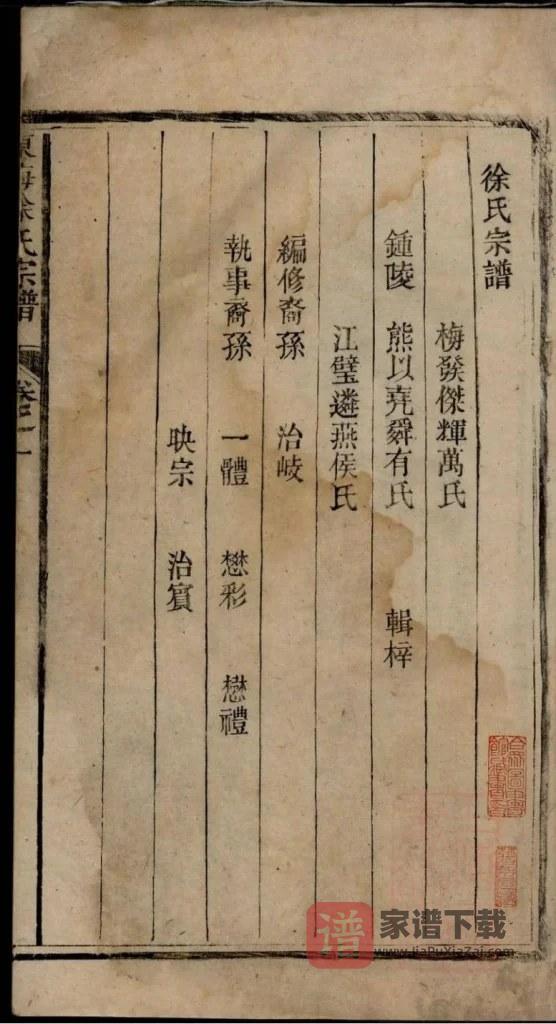 徐氏宗譜
梅發傑輝萬氏
鍾陵 熊以堯舜有氏 輯梓
江璧遴燕侯氏
編修裔孫 治岐
執事裔孫 一體 懋彩 懋禮
映宗 治賓
東海徐氏宗譜 卷之一
譜 家谱下载
www.JiaPuXiaZai.com